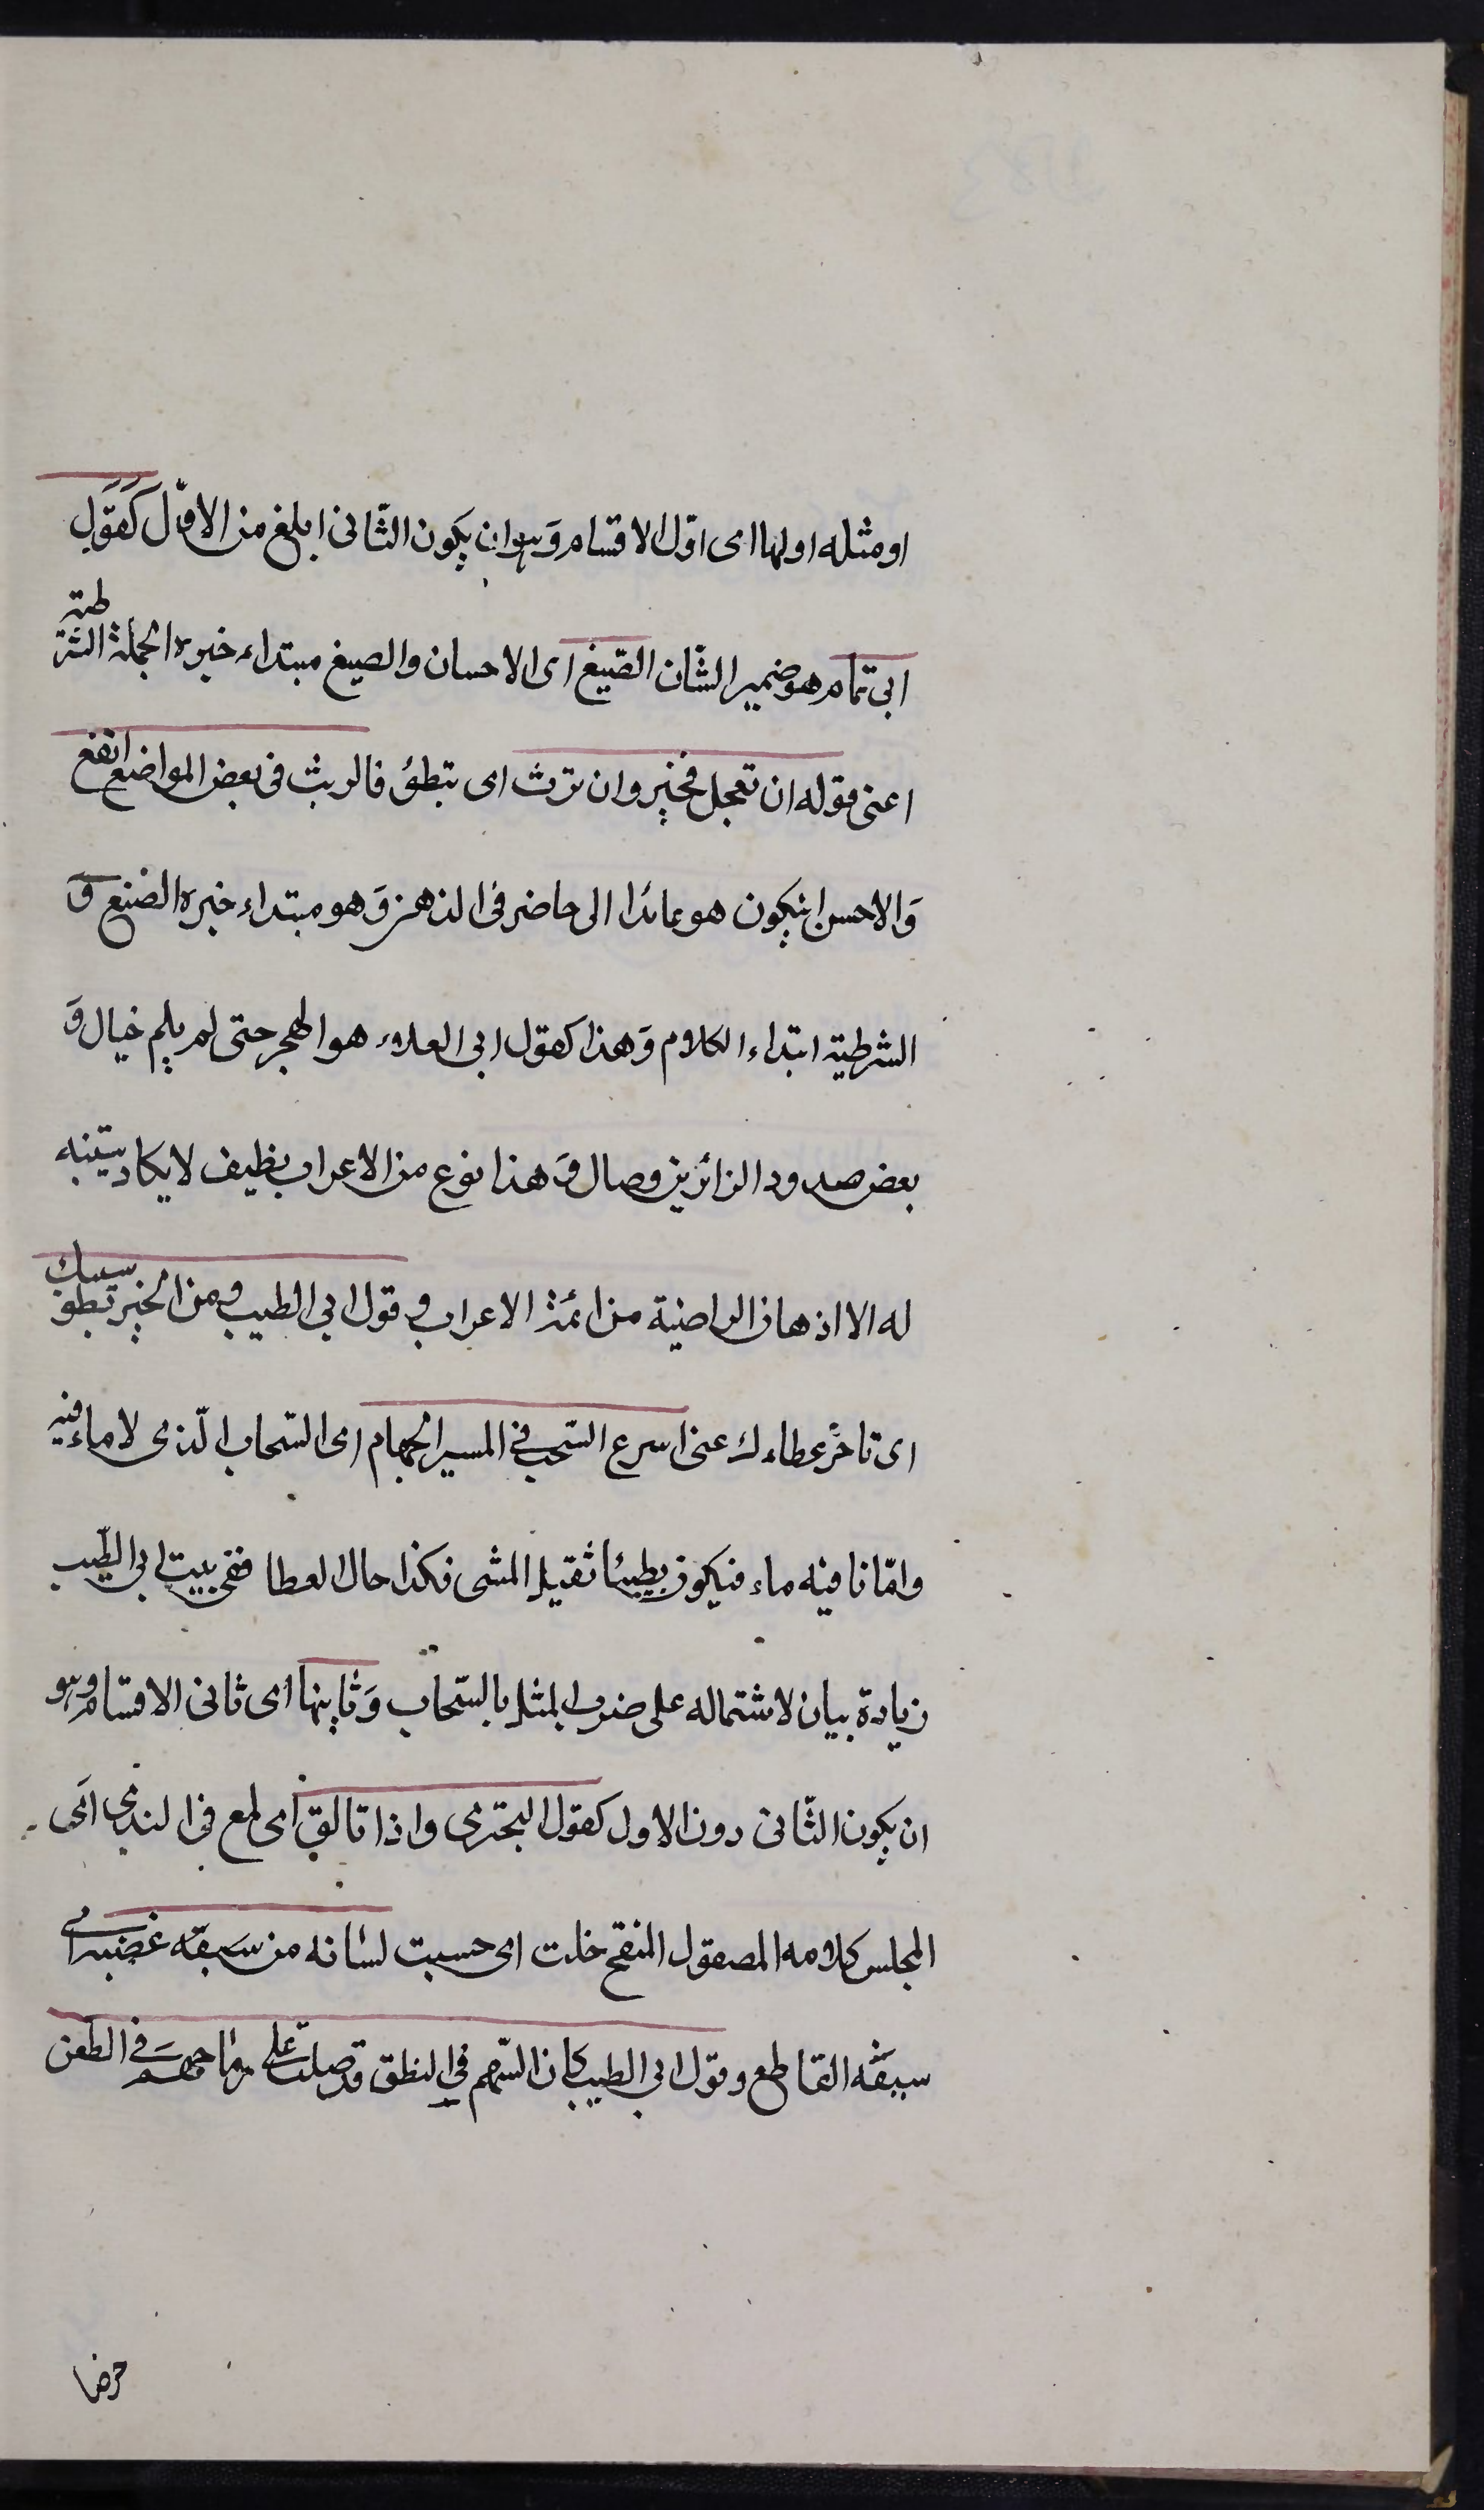 او مثله اولها اى اوّل الاقسام وَهو ان يكون الثّانى ابلغ من الاوّل كَقَوْلِ
ابى تمّام هو ضمير الشّان الصّنيع اى الاحسان والصنيع مبتداء خبره الجملة الشّرطيّة
اعنى قوله ان تعجل فخير وان ترث اى تبطؤ فالريث فى بعض المواضع انفع
وَالاحسن ان يكون هو عائدا الى حاضر فى الذهن وَهو مبتداء خبره الصّنيع وَ
الشرطية ابتداء الكلام وَهذا كقول ابى العلاء هو الهجر حتى لم يلم خيال وَ
بعض صدود الزائرين وصال وَهذا نوع من الاعراب نظيف لا يكاد يتنبه
له الا اذهان الراضية من ائمة الاعراب و قول ابى الطيب ومن الخير بطؤ سيبك
اى تاخّر عطاءك عنى اسرع السّحب فى المسير الجهام اى السّحاب الّذى لا ماء فيه
وامّا ما فيه ماء فيكون بطيئا ثقيل المشى فكذا حال العطا ففى بيت ابى الطّيب
زيادة بيان لاشتماله على ضرب المثل بالسّحاب وَثانيها اى ثانى الاقسام وهو
ان يكون الثّانى دون الاول كقول البحترى واذا تالق اى لمع فى الندى اى
المجلس كلامه المصقول المنقح خلت اى حسبت لسانه من سيفه عضبه اى
سيفه القاطع وقول ابى الطيب كان السنهم فى النطق قد جعلت على رماحهم فى الطعن
خرصا